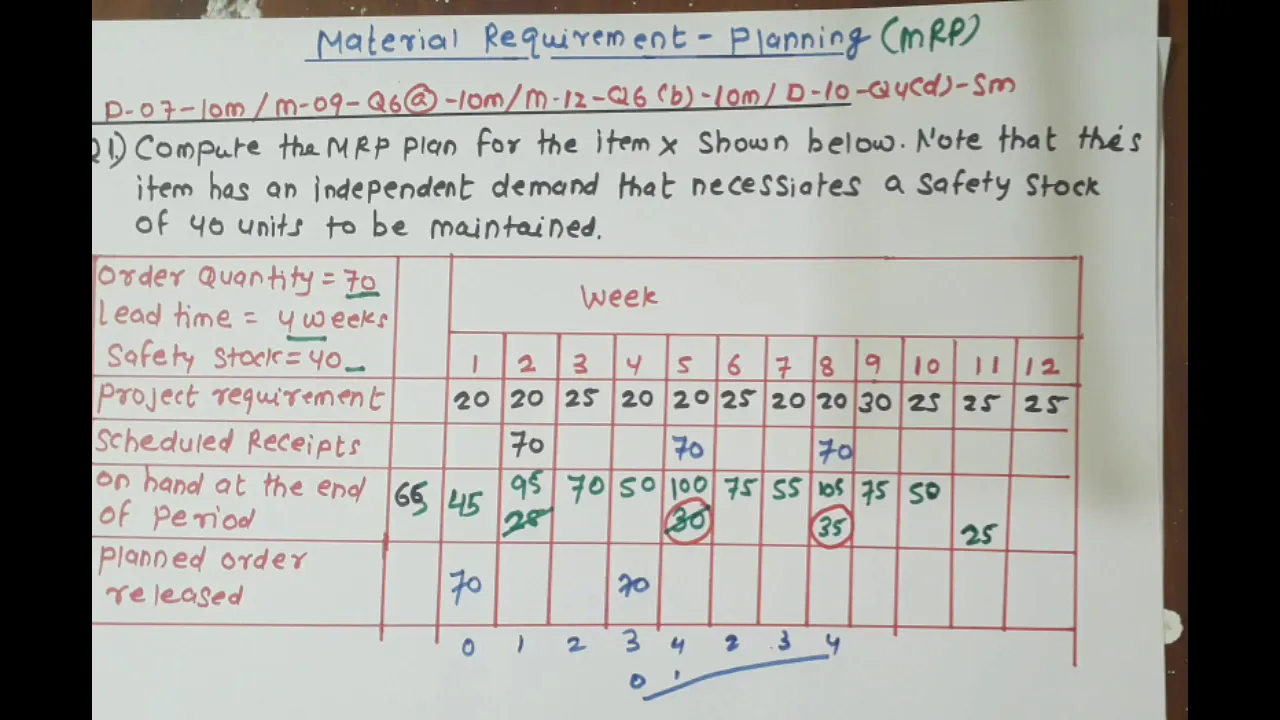 Material Requirement - Planning (MRP)
D-07-10m / M-09-Q6(a)-10m / M-12-Q6(b)-10m / D-10-Q4(d)-5m
Q1.) Compute the MRP plan for the item x shown below. Note that this
item has an independent demand that necessiates a safety stock
of 40 units to be maintained.
Order Quantity = 70
Lead time = 4 weeks
Safety stock = 40
Week
1 2 3 4 5 6 7 8 9 10 11 12
Project requirement 20 20 25 20 20 25 20 20 30 25 25 25
Scheduled Receipts 70 70 70
on hand at the end 65 45 95 70 50 100 75 55 105 75 50
of Period 25 30 35 25
planned order
released 70 70
0 1 2 3 4 2 3 4
0 1